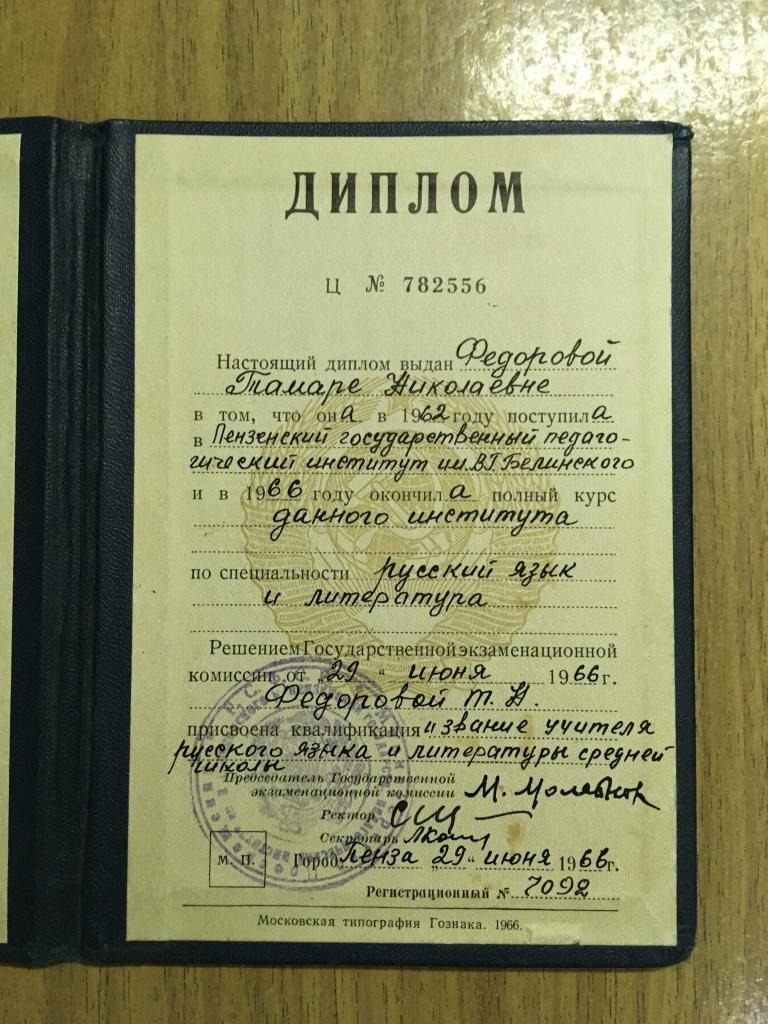 ДИПЛОМ
Ц № 782556
Настоящий диплом выдан Федоровой
Тамаре Николаевне
в том, что она в 1962 году поступила
в Пензенский государственный педаго-
гический институт им. В.Г. Белинского
и в 1966 году окончила полный курс
данного института
по специальности русский язык
и литература
Решением Государственной экзаменационной
комиссии от „29“ июня 1966 г.
Федоровой Т. Н.
присвоена квалификация и звание учителя
русского языка и литературы средней
школы
Председатель Государственной
экзаменационной комиссии М.
Ректор
Секретарь
М. П. Город Пенза „29“ июня 1966 г.
Регистрационный № 7092
Московская типография Гознака. 1966.